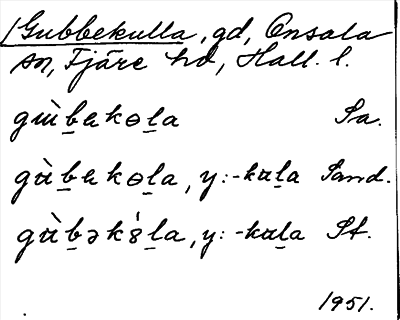 Gubbekulla, gd, Onsala
sn, Fjäre hd, Hall. l.
gɯ̀b̲ekɵl̲a Sa.
gɑ̀b̲ekɵl̲a, y:-kɑl̲a Sand.
gɑ̀b̲əkɵ́l̲a, y:-kɑl̲a St.
1951.